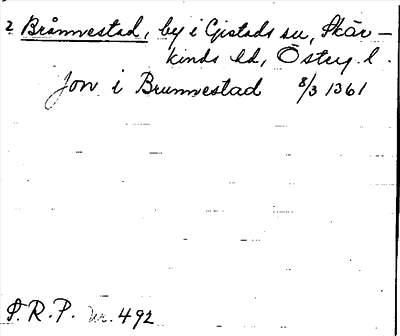 2 Brånnestad, by i Gistads sn, Skär-
kinds hd, Österg. l.
Jon i Brunnestad 8/3 1361
S.R.P. nr. 492